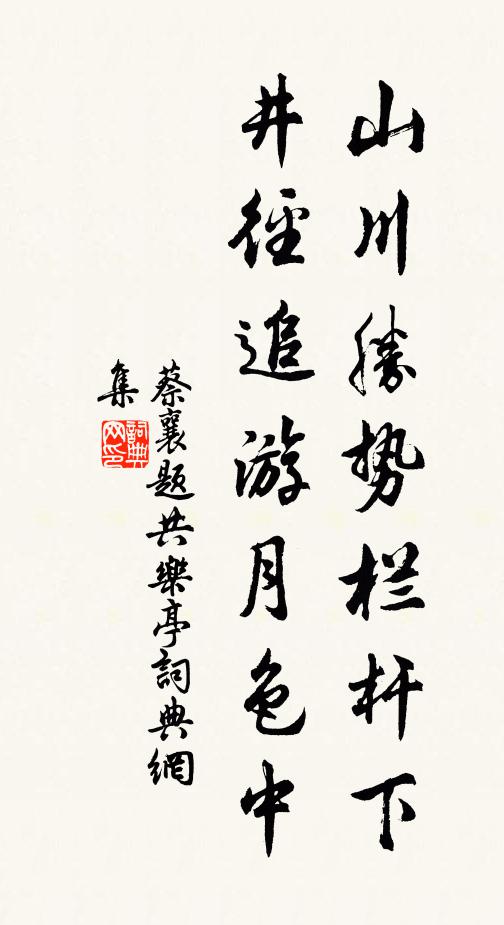 山川勝势栏杆下
井徑追游月色中
蔡襄题共樂亭詞典網
集
詞典网印